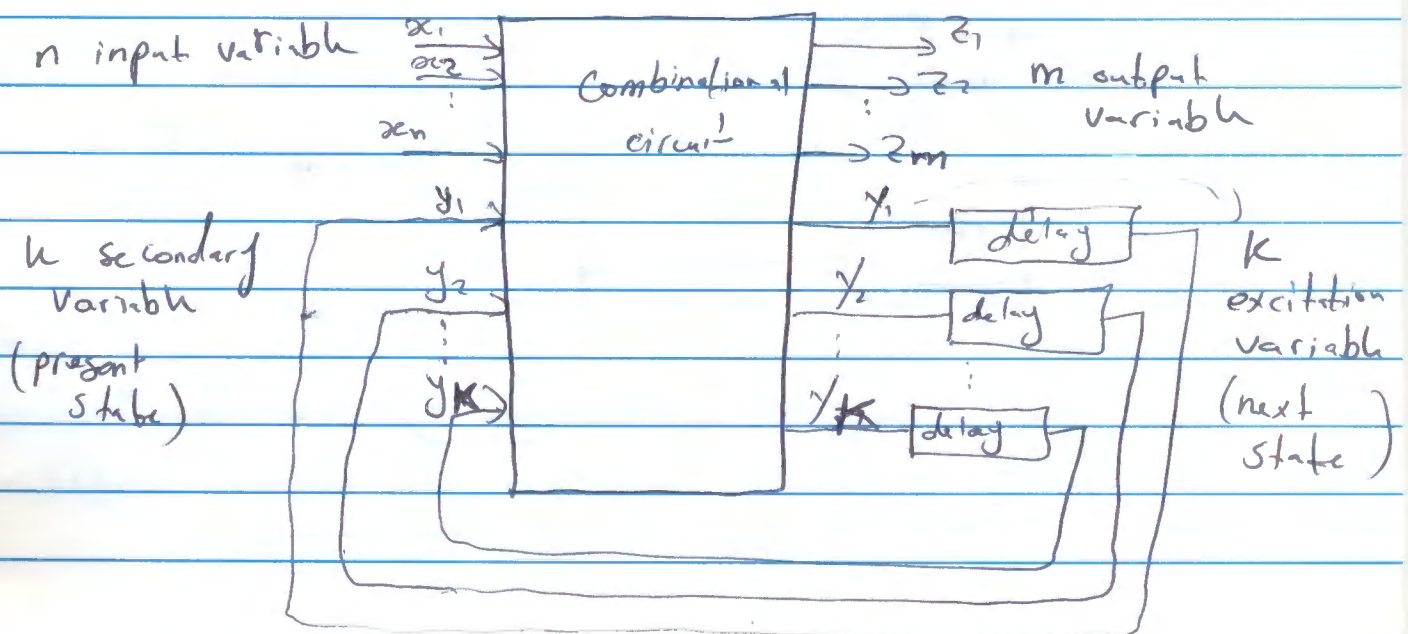 n input variable
x1
x2
:
xn
Combinational
circuit
z1
z2
:
zm
m output
variable
k secondary
variable
(present
state)
y1
y2
⋮
yK
Y1
Y2
⋮
YK
delay
delay
⋮
delay
K
excitation
variable
(next
state)